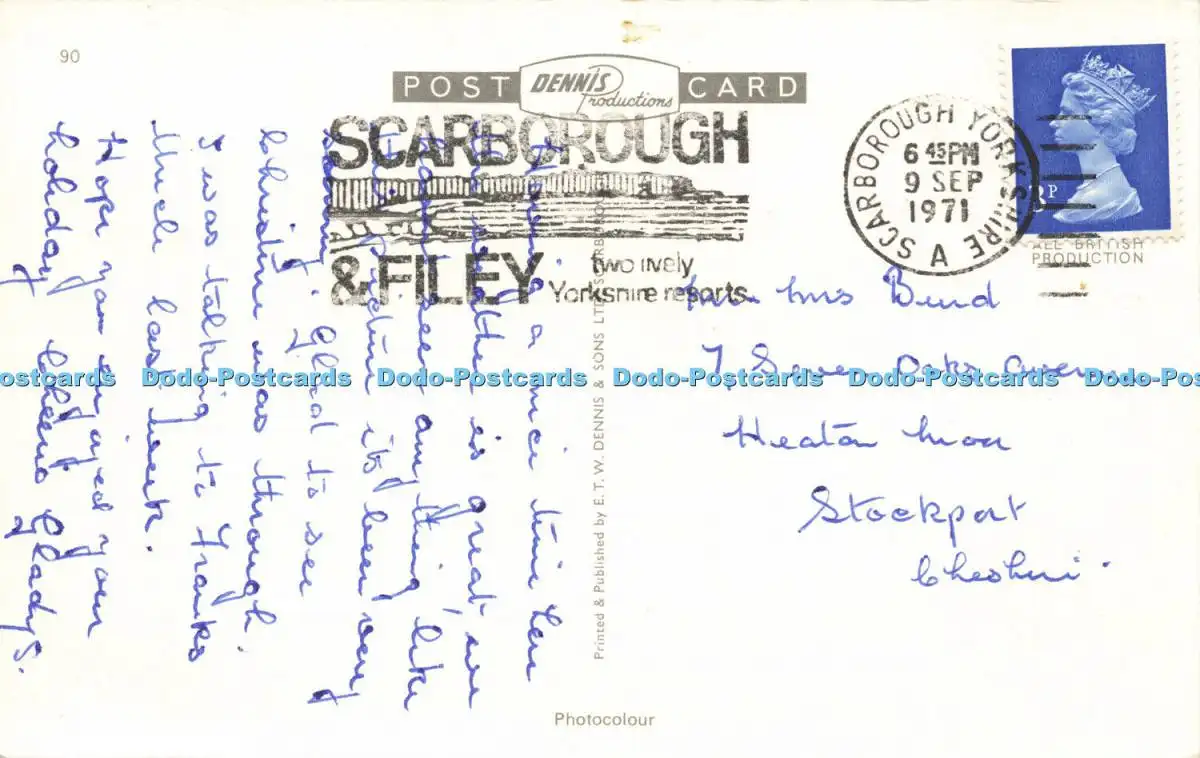 90
POST DENNIS Productions CARD
SCARBOROUGH
& FILEY two lively
Yorkshire resorts
SCARBOROUGH YORKSHIRE A
6 45 PM
9 SEP
1971
P
ALL BRITISH
PRODUCTION
Having a nice time here
the weather is great, we
seen anything like
this picture its been very
Glad to see
Christine was through.
I was talking to Franks
last week.
Hope you enjoyed your
holiday Cheerio Gladys.
Mrs Bund
7 Seven Oaks Avenue
Heaton Moor
Stockport
Cheshire
Printed & Published by E. T. W. DENNIS & SONS LTD., SCARBOROUGH
Photocolour
Dodo-Postcards Dodo-Postcards Dodo-Postcards Dodo-Postcards Dodo-Postcards